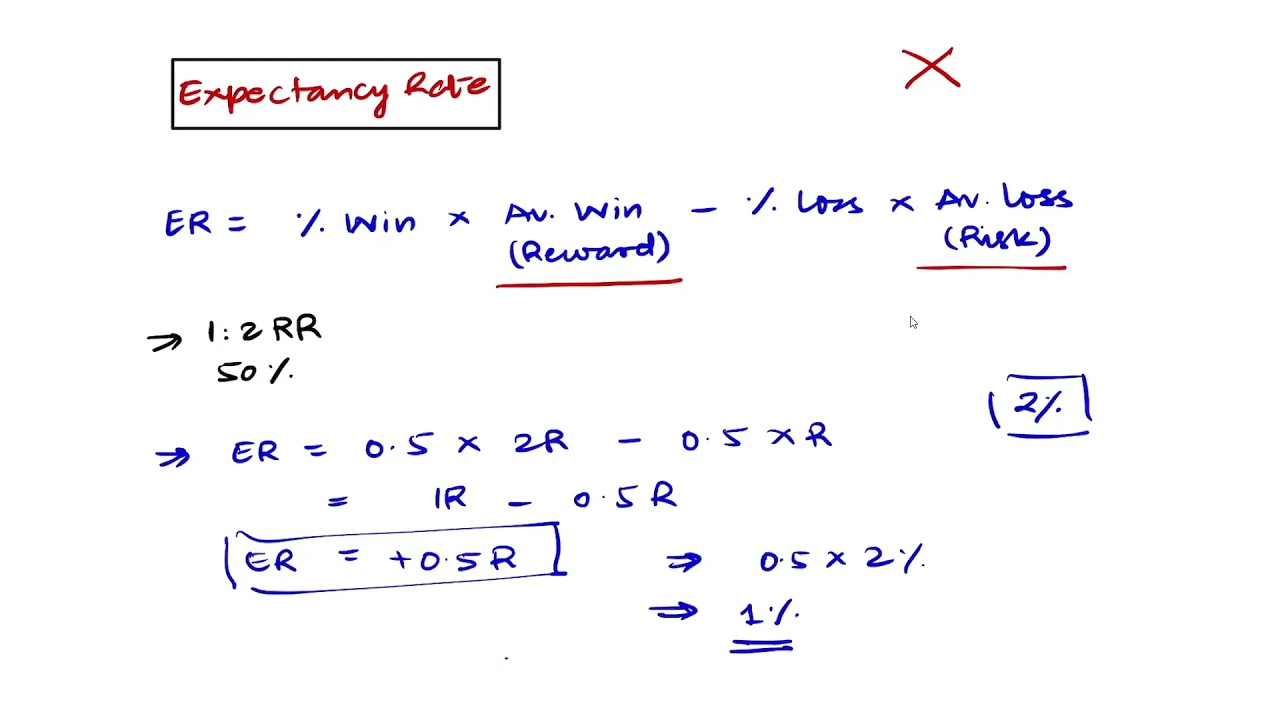 Expectancy Rate
ER = % Win × Av. Win (Reward) − % Loss × Av. Loss (Risk)
⇒ 1:2 RR
50%
2%
⇒ ER = 0.5 × 2R − 0.5 × R
= 1R − 0.5R
ER = +0.5R ⇒ 0.5 × 2%
⇒ 1%